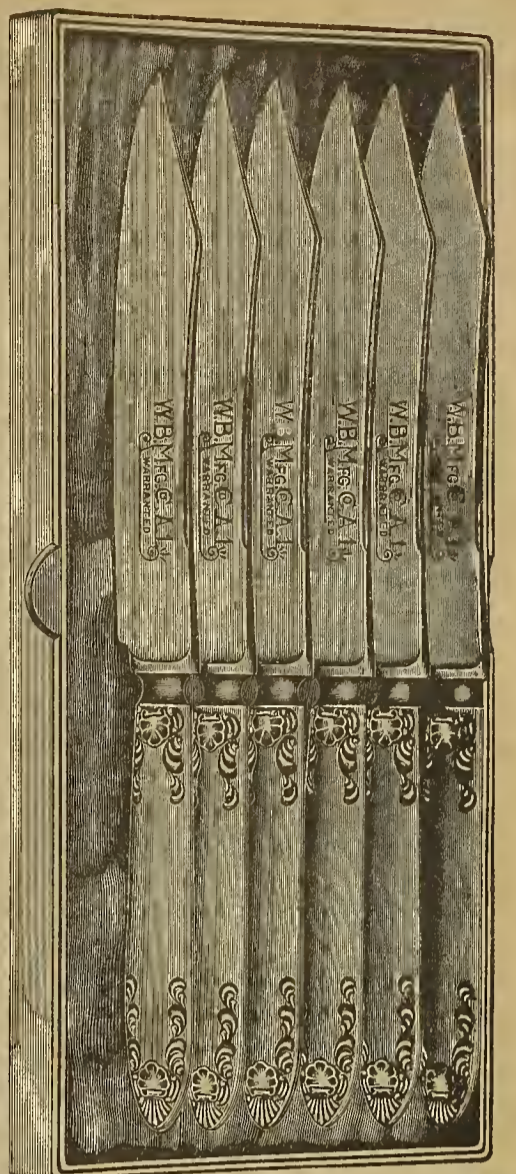 W.B. MFG. CO. A.1.
WARRANTED
W.B. MFG. CO. A.1.
WARRANTED
W.B. MFG. CO. A.1.
WARRANTED
W.B. MFG. CO. A.1.
WARRANTED
W.B. MFG. CO. A.1.
WARRANTED
W.B. MFG. CO.